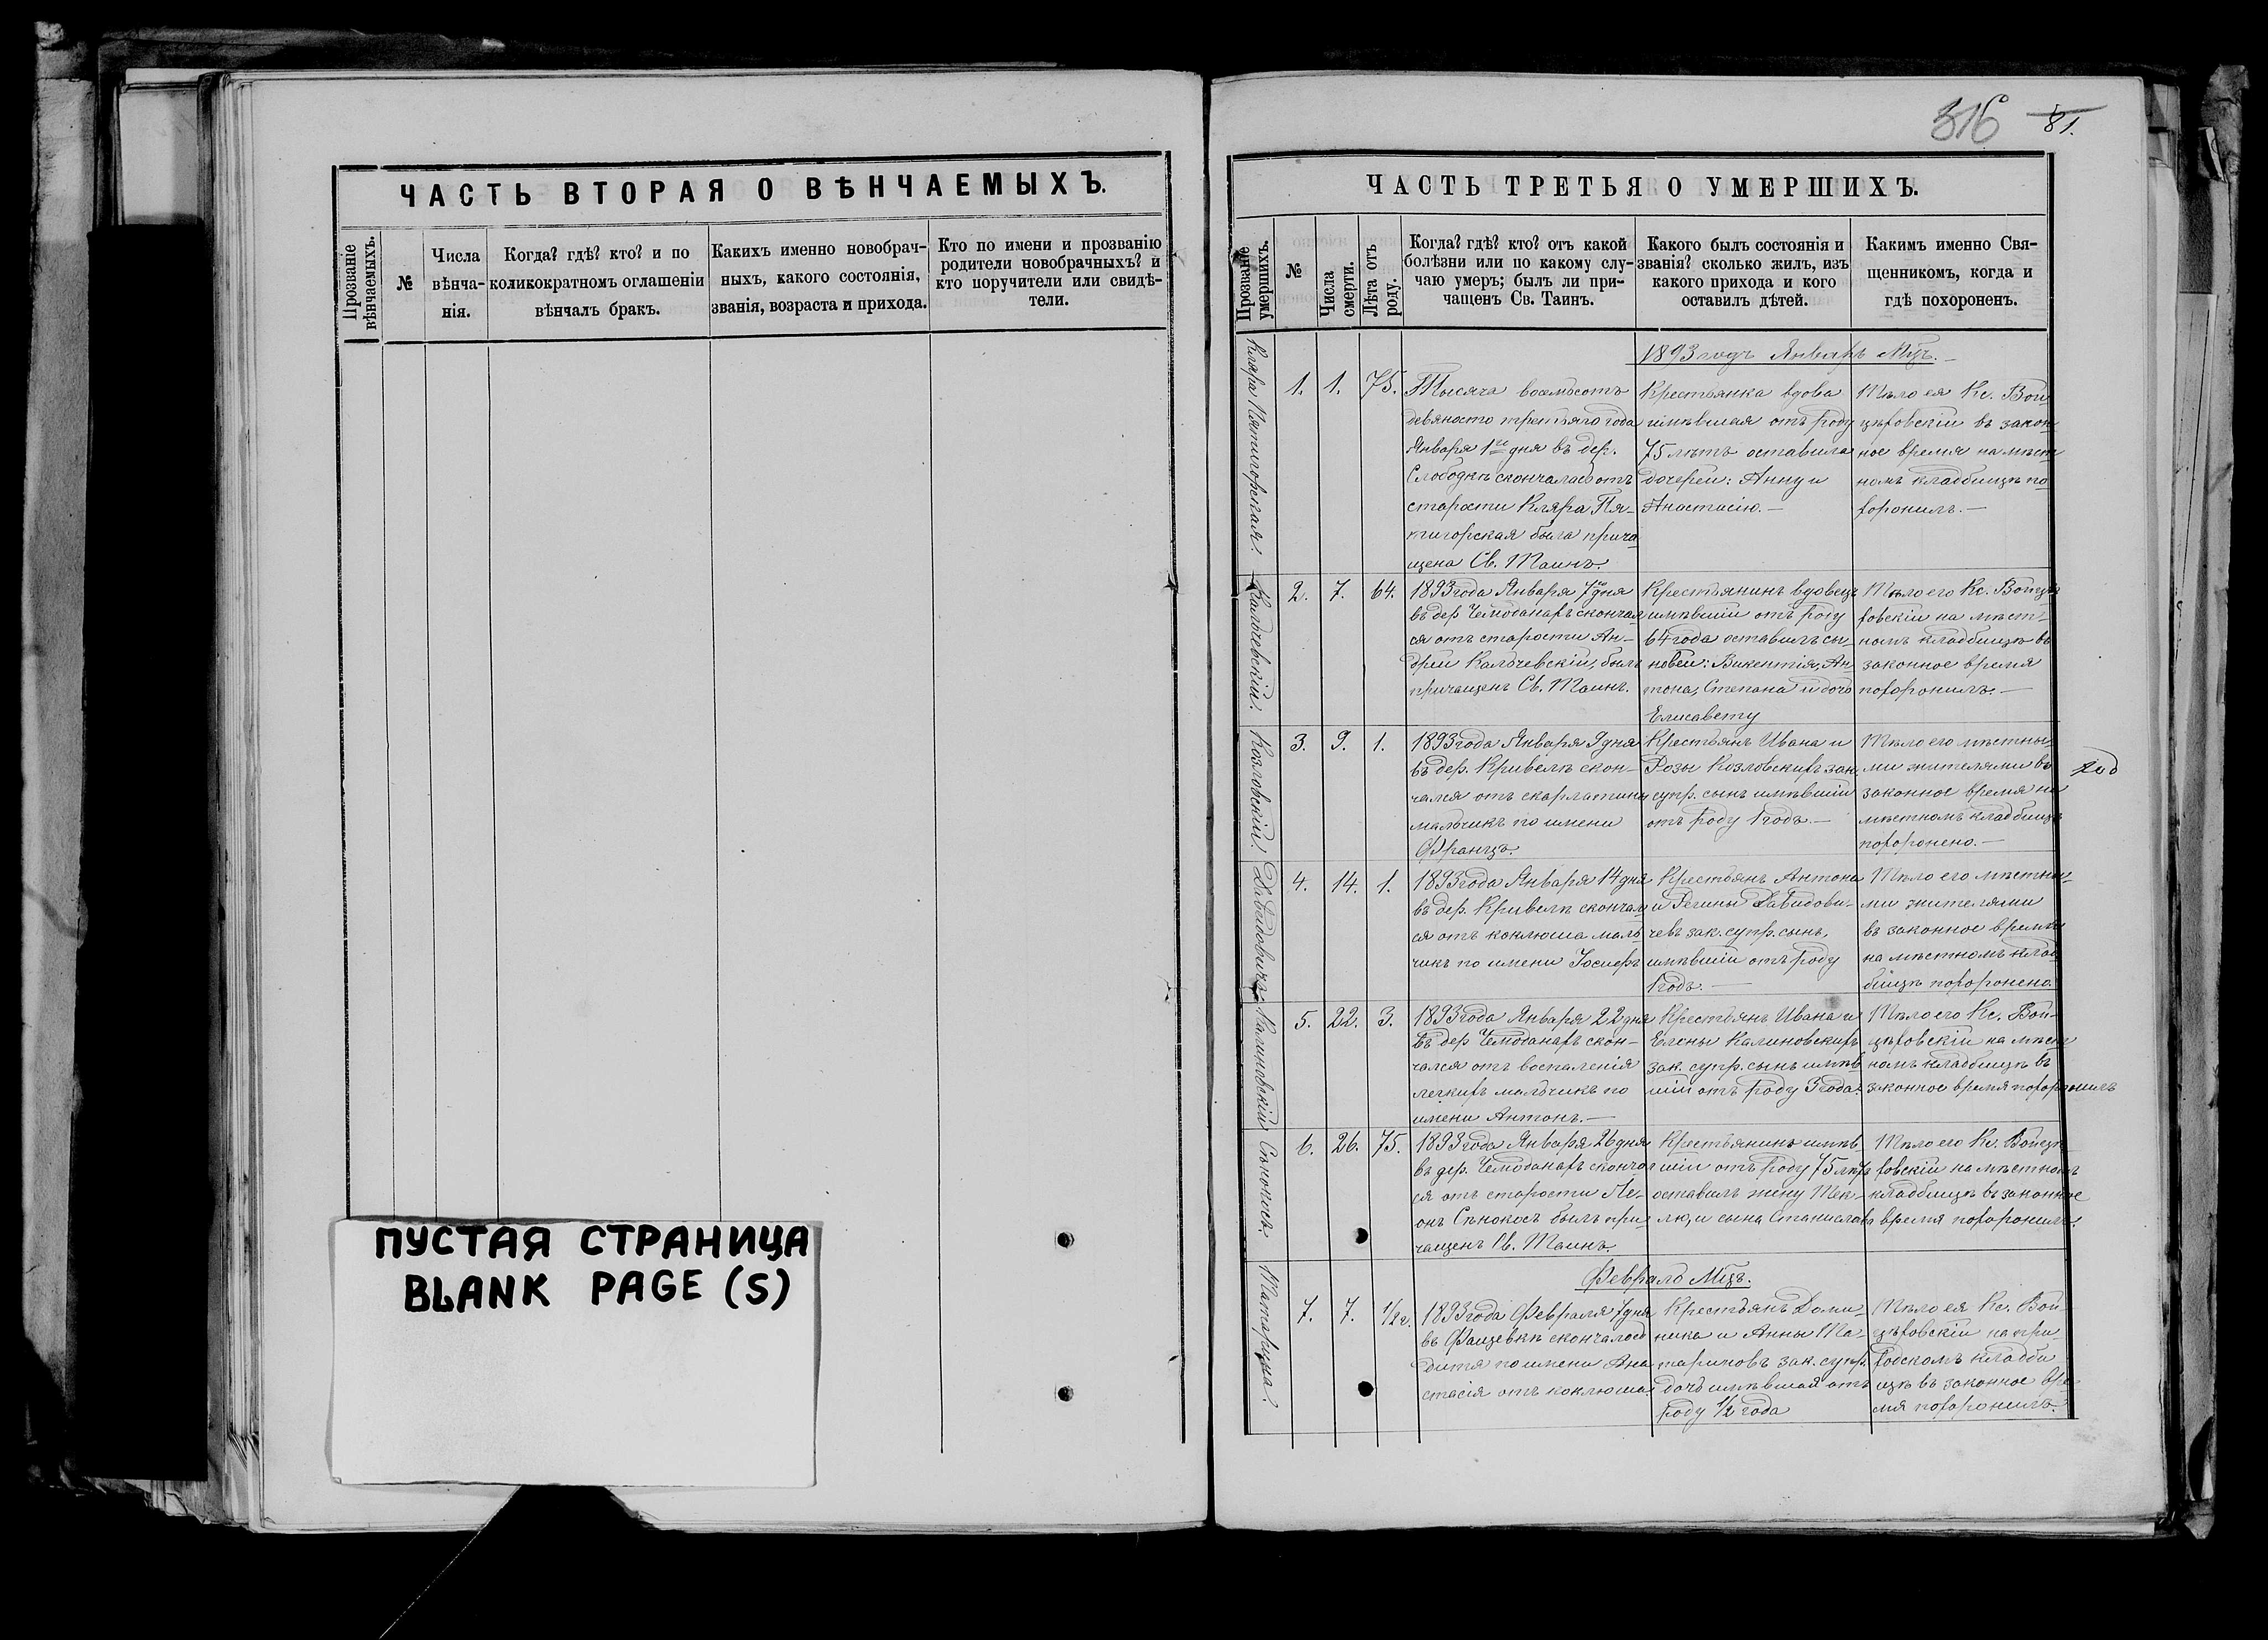 ЧАСТЬ ВТОРАЯ О ВѢНЧАЕМЫХЪ.
Прозваніе вѣнчаемыхъ.
№
Числа вѣнча-
нія.
Когда? гдѣ? кто? и по
коликократномъ оглашеніи
вѣнчалъ бракъ.
Какихъ именно новобрач-
ныхъ, какого состоянія,
званія, возраста и прихода.
Кто по имени и прозванію
родители новобрачныхъ? и
кто поручители или свидѣ-
тели.
ПУСТАЯ СТРАНИЦА
BLANK PAGE (S)
316 81.
ЧАСТЬ ТРЕТЬЯ О УМЕРШИХЪ.
Прозваніе умершихъ.
№
Числа смерти.
Лѣта отъ роду.
Когда? гдѣ? кто? отъ какой
болѣзни или по какому слу-
чаю умеръ; былъ ли при-
чащенъ Св. Таинъ.
Какого былъ состоянія и
званія? сколько жилъ, изъ
какого прихода и кого
оставилъ дѣтей.
Какимъ именно Свя-
щенникомъ, когда и
гдѣ похороненъ.
1893 годъ Январь Мцъ.
Клара Пятигорская.
1. 1. 75.
Тысяча восемьсотъ
девяносто третьяго года
Января 1го дня въ дер.
Слободкѣ скончалась отъ
старости Кляра Пя-
тигорская была прича
щена Св. Таинъ.
Крестьянка вдова
имѣвшая отъ роду
75 лѣтъ оставила
дочерей: Анну и
Анастасію.—
Тѣло ея Кс. Вой
цѣховскій въ закон
ное время на мѣст
номъ кладбищѣ по
хоронилъ.—
Кальчевскій.
2. 7. 64.
1893 года Января 7го дня
въ дер Чемоданахъ скончал
ся отъ старости Ан-
дрей Кальчевскій, былъ
причащенъ Св. Таинъ.
Крестьянинъ вдовецъ
имѣвшій отъ роду
64 года оставилъ сы-
новей: Викентія, Ан
тона, Степана и дочь
Елисавету
Тѣло его Кс. Войцѣ
ховскій на мѣст-
номъ кладбищѣ въ
законное время
похоронилъ.—
Козловскій.
3. 9. 1.
1893 года Января 9 дня
въ дер. Кривелѣ скон-
чался отъ скарлатины
мальчикъ по имени
Францъ.
Крестьянъ Ивана и
Розы Козловскихъ зак.
супр. сынъ имѣвшій
отъ роду 1 годъ.—
Тѣло его мѣстны-
ми жителями въ
законное время на
мѣстномъ кладбищѣ
похоронено.—
Давидовичъ.
4. 14. 1.
1893 года Января 14 дня
въ дер. Кривелѣ скончал
ся отъ коклюша маль
чикъ по имени Іосифъ
Крестьянъ Антона
и Регины Давидови-
чевъ зак. супр. сынъ,
имѣвшій отъ роду
1 годъ.—
Тѣло его мѣстны-
ми жителями
въ законное время
на мѣстномъ клад
бищѣ похоронено.
Калиновскій
5. 22. 3.
1893 года Января 22 дня
въ дер Чемоданахъ скон-
чался отъ воспаленія
легкихъ мальчикъ по
имени Антонъ.—
Крестьянъ Ивана и
Елены Калиновскихъ
зак. супр. сынъ имѣв
шій отъ роду 3 года.
Тѣло его Кс. Вой-
цѣховскій на мѣст
номъ кладбищѣ въ
законное время похоронилъ
Сѣнокосъ.
6. 26. 75.
1893 года Января 26 дня
въ дер. Чемоданахъ скончал
ся отъ старости Ле-
онъ Сѣнокосъ былъ при
чащенъ Св. Таинъ.
Крестьянинъ имѣв
шій отъ роду 75 лѣтъ
оставилъ жену Тек-
лю, и сына Станислава
Тѣло его Кс. Войцѣ
ховскій на мѣстномъ
кладбищѣ въ законное
время похоронилъ.
Февраль Мцъ.
Татарина.
7. 7. 1/2 г.
1893 года Февраля 7 дня
въ Фащевкѣ скончалось
дитя по имени Ана
стасія отъ коклюша
Крестьянъ Доми-
ника и Анны Та-
тариновъ зак. супр.
дочь имѣвшая отъ
роду 1/2 года
Тѣло ея Кс. Вой-
цѣховскій на при
ходскомъ кладби
щѣ въ законное вре
мя похоронилъ.